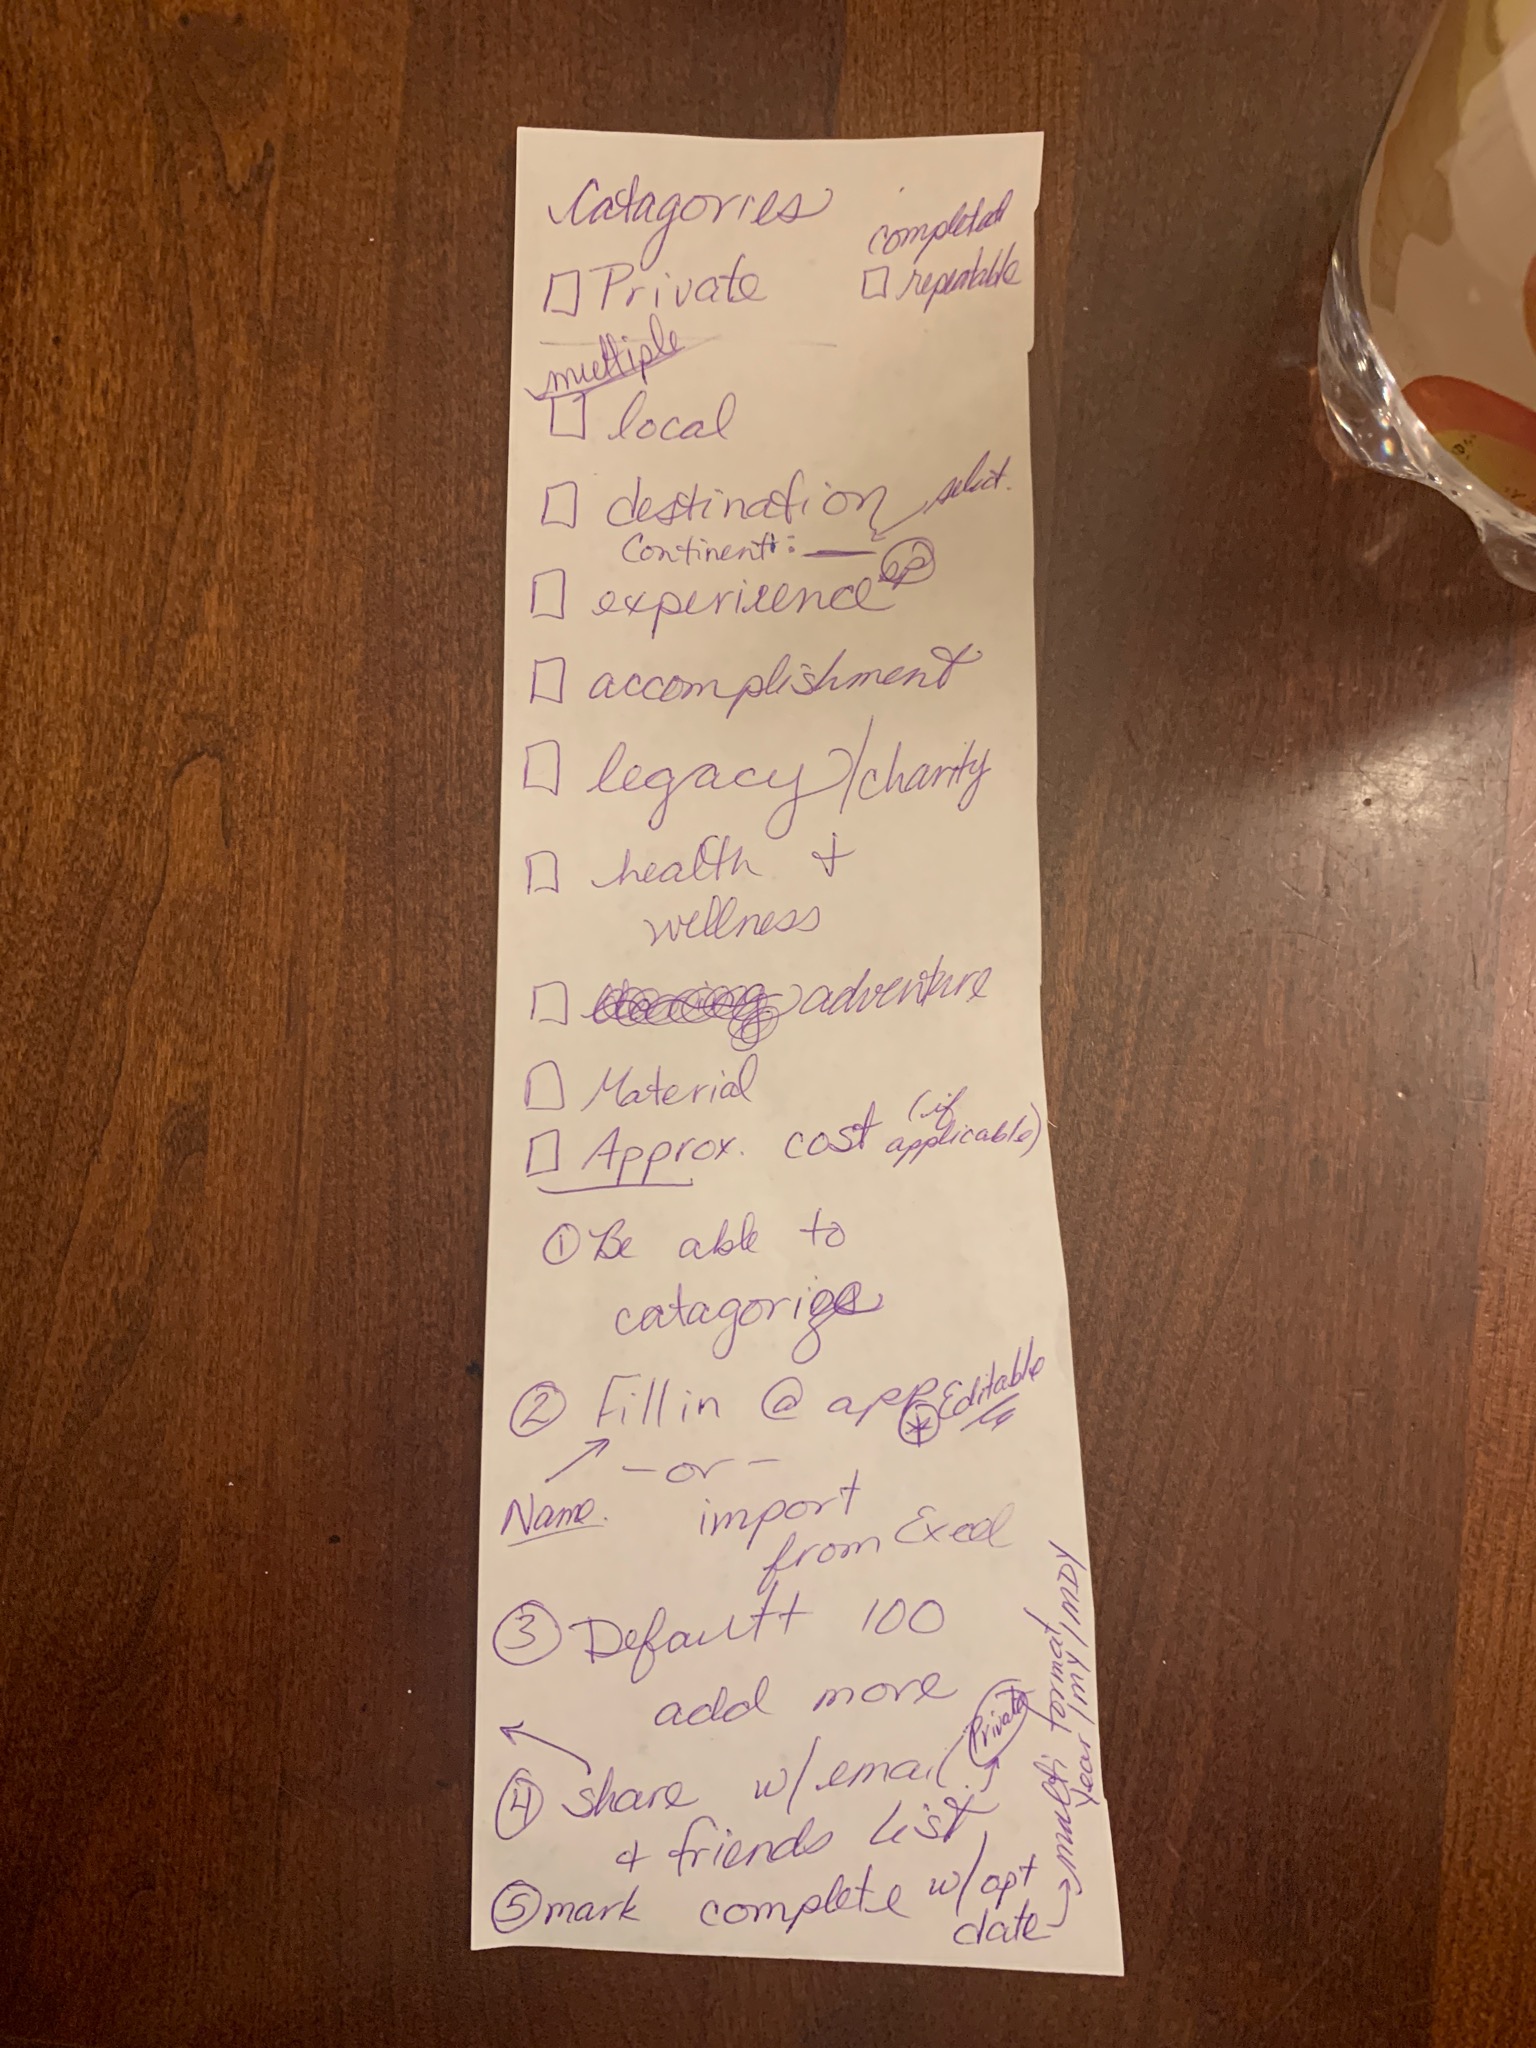 Catagories
completed
Private
repeatable
multiple
local
destination select.
Continent:
experience sp
accomplishment
legacy/charity
health +
wellness
adventure
Material
Approx. cost (if
applicable)
① Be able to
catagorize
② Fill in @ app * Editable
- or -
Name. import
from Excel
③ Default 100
add more
④ share w/ email Private
+ friends list
⑤ mark complete w/ opt
date
multi format
year / MY / MDY